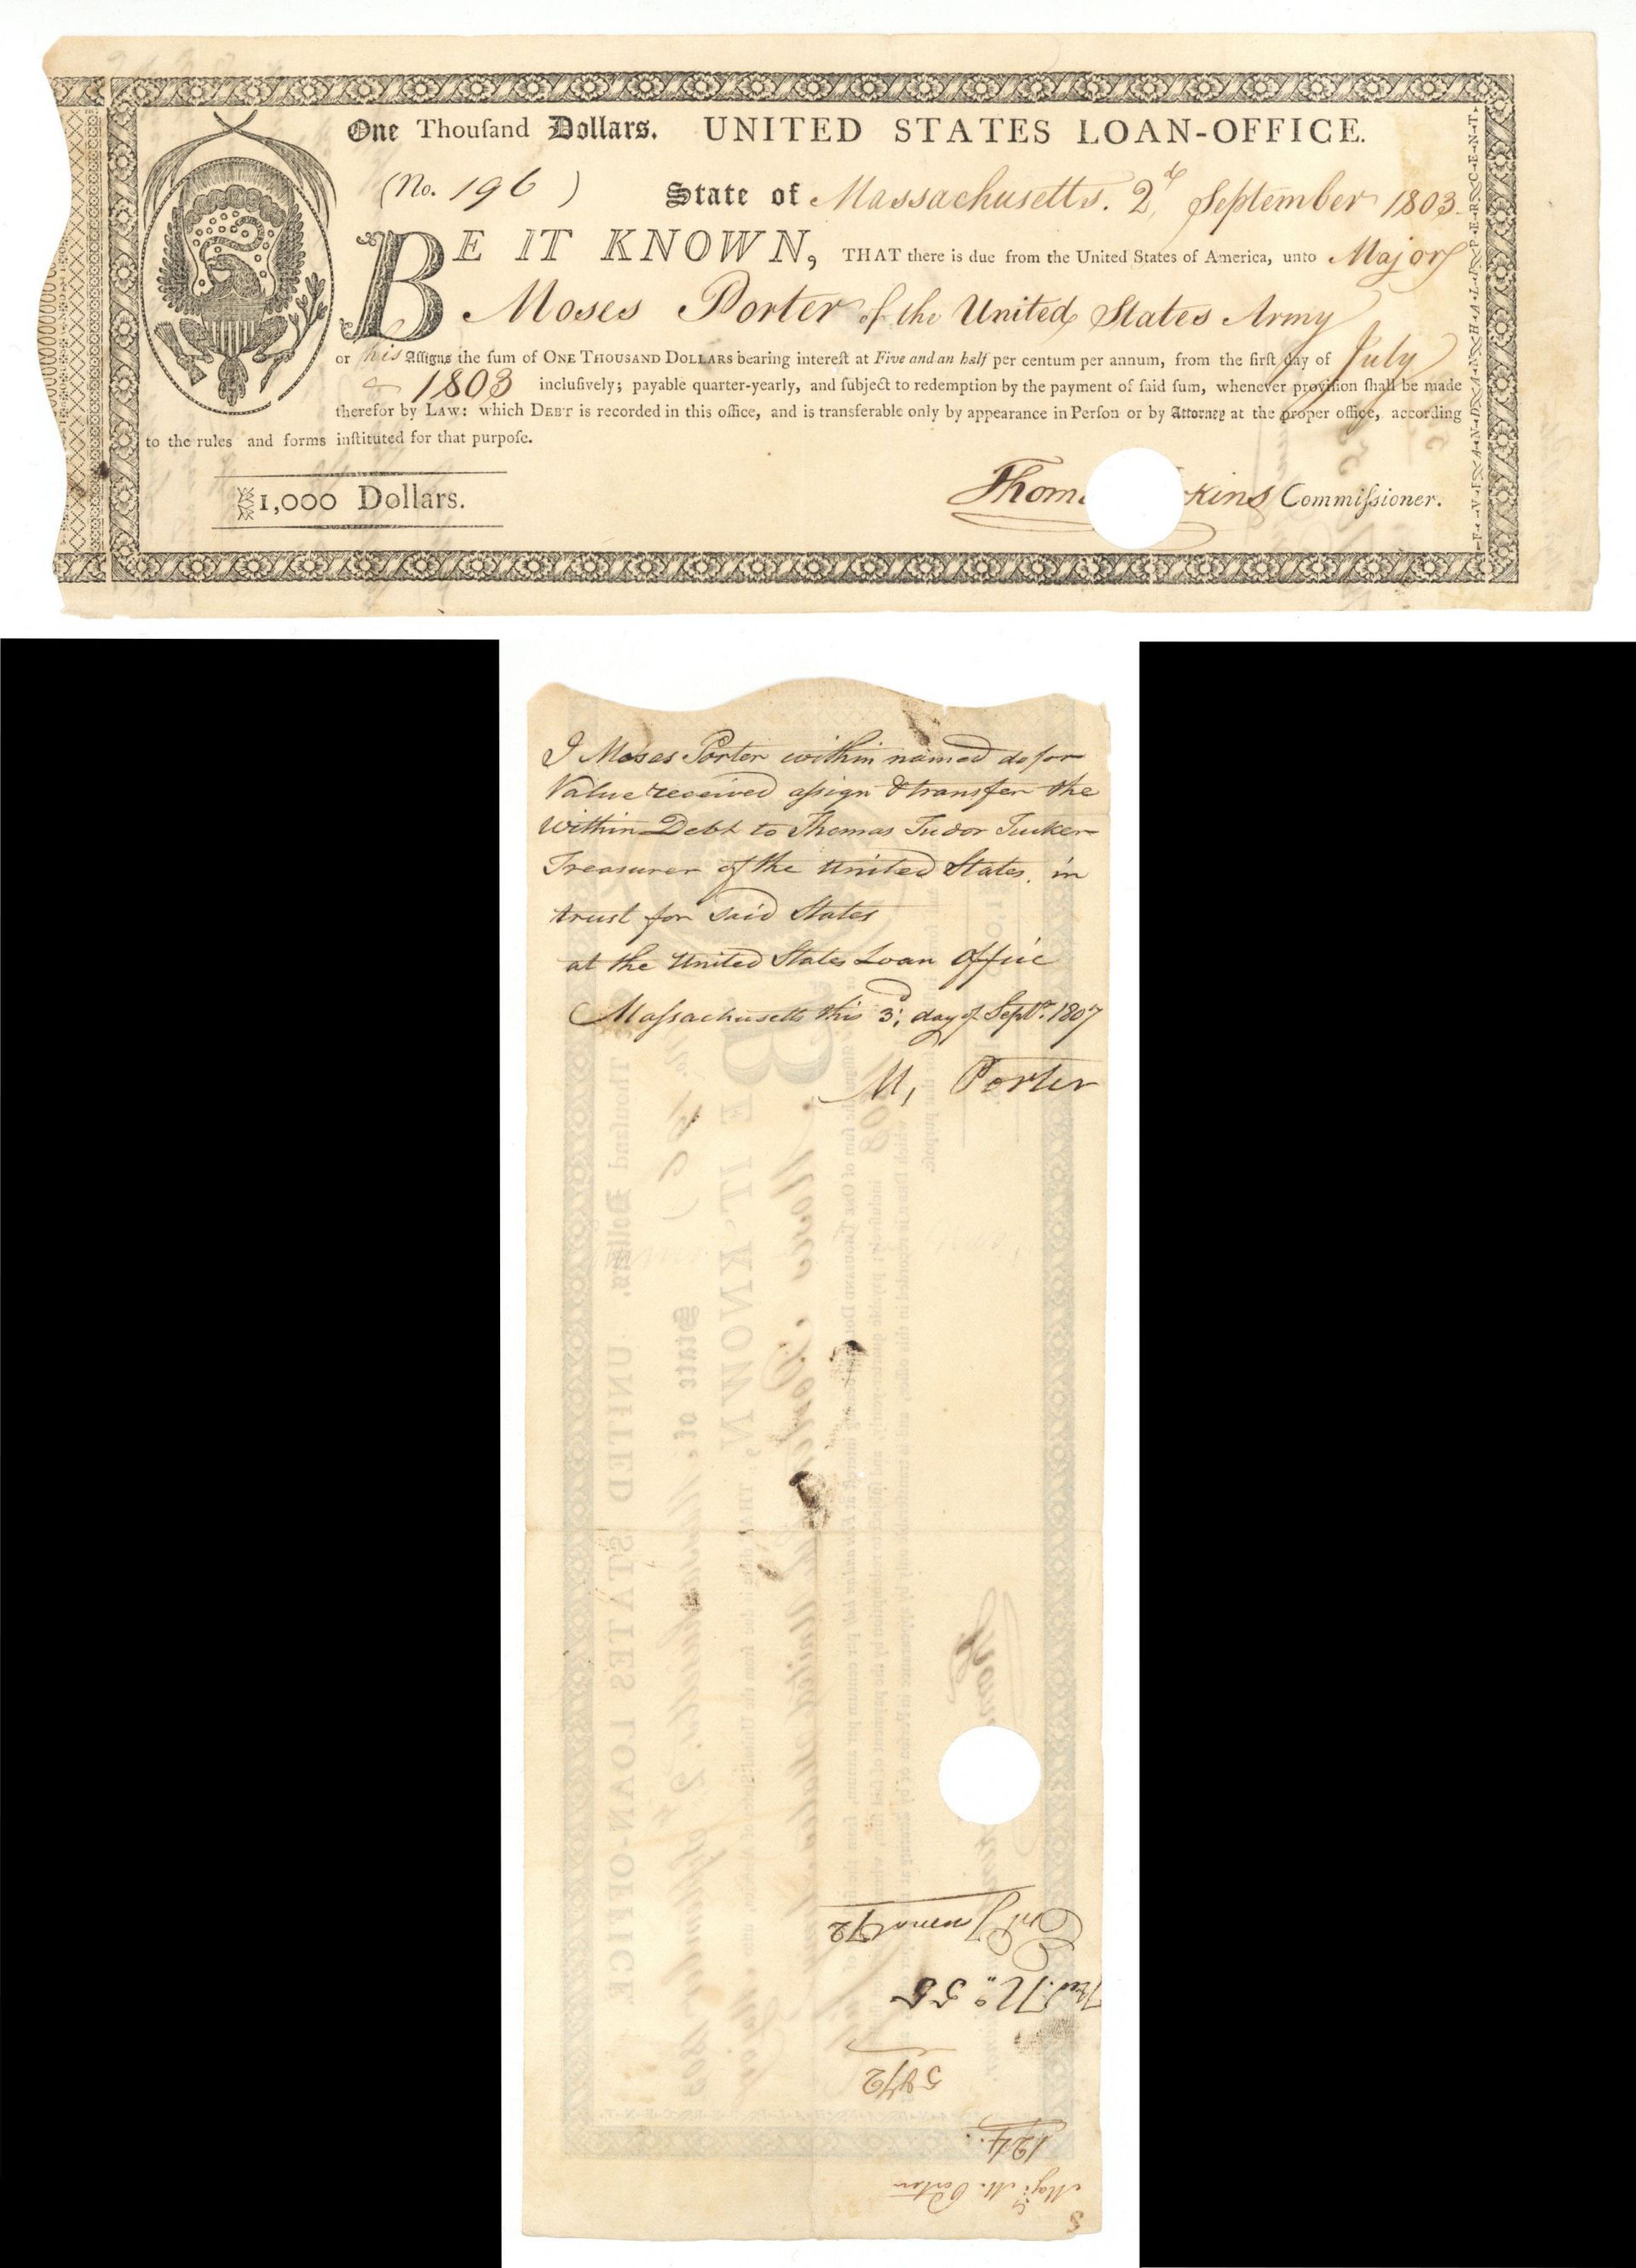 One Thouſand Dollars. UNITED STATES LOAN-OFFICE.
(No. 196) State of Massachusetts. 2d September 1803.
BE IT KNOWN, THAT there is due from the United States of America, unto Major
Moses Porter of the United States Army
or his Aſſigns the ſum of ONE THOUSAND DOLLARS bearing intereſt at Five and an half per centum per annum, from the firſt day of July
1803 incluſively; payable quarter-yearly, and ſubject to redemption by the payment of ſaid ſum, whenever proviſion ſhall be made
therefor by LAW: which DEBT is recorded in this office, and is transferable only by appearance in Perſon or by Attorney at the proper office, according
to the rules and forms inſtituted for that purpoſe.
1,000 Dollars.
Thom kins Commiſsioner.
F-I-V-E A-N-D A-N H-A-L-F P-E-R C-E-N-T.
I Moses Porter within named do for
Value received aſsign & transfer the
Within Debt to Thomas Tudor Tucker
Treasurer of the United States, in
trust for said States
at the United States Loan Office
Maſsachusetts this 3d, day of Septr. 1807
M, Porter
No. 55
124.
Majr. M. Porter